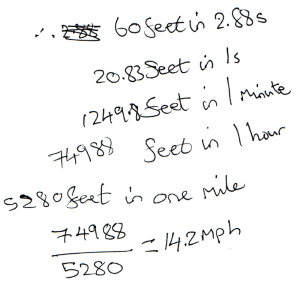 ∴ 60 feet in 2.88s
20.83 feet in 1s
1249.8 feet in 1 minute
74988 feet in 1 hour
5280 feet in one mile
74988
5280
= 14.2 mph